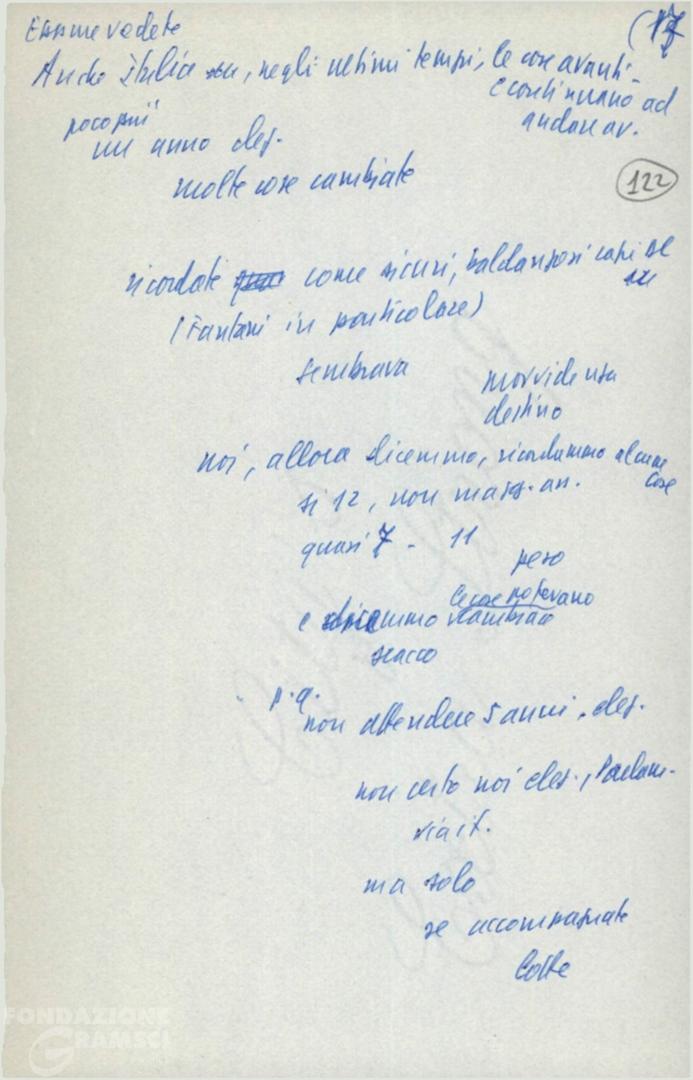 (17
Anche Italia, negli ultimi tempi, le cose avanti
e continuano ad
andare av.
poco più
un anno elez.
molte cose cambiate
122
ricordate come sicuri, baldanzosi capi DC
(Fanfani in particolare)
sembrava
destino
noi, allora dicemmo, ricordammo alcune
cose
si 12, non magg. an.
quasi 7 - 11
peso
le cose potevano
e dicemmo cambiare
scacco
p. q.
non attendere 5 anni, elez.
non certo noi elez., Parlam.
via it.
ma solo
se accompagnate
lotte
FONDAZIONE
GRAMSCI